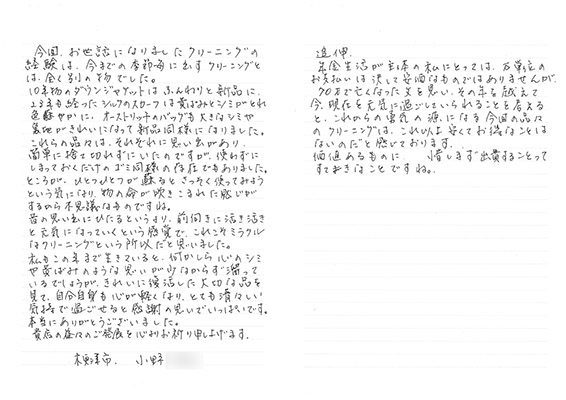 今回、お世話になりましたクリーニングの
経験は、今までの季節毎に出すクリーニングと
は、全く別の物でした。
10年物のダウンジャケットはふんわりと新品に、
23年も経ったシルクのスカーフは黄ばみとシミがとれ
色鮮やかに、オーストリッチのバッグも大きなシミや
裏地がきれいになって新品同様になりました。
これらの品々は、それぞれに思い出があり、
簡単に捨て切れずにいたのですが、使わずに
しまっておくだけのゴミ同様の存在でもありました。
ところが、ひとつひとつが蘇るとさっそく使ってみよう
という気になり、物の命が吹きこまれた感じが
するから不思議なものですね。
昔の思い出にひたるというより、前向きに活き活き
と元気になっていくという感覚で、これこそミラクル
なクリーニングという所以だと思いました。
私もこの年まで生きていると、何かしら心のシミ
や黄ばみのような思いが少なからず溜って
いるでしょうが、きれいに復活した大切な品を
見て、自分自身も心が軽くなり、とても清々しい
気持で過ごせると感謝の思いでいっぱいです。
本当にありがとうございました。
貴店の益々のご発展を心よりお祈り申し上げます。
木更津市、 小野
追伸、
年金生活が主体の私にとっては、万単位の
お支払いは決して安価なものではありませんが、
70才で亡くなった父を思い、その年を越えて
今現在を元気に過ごしていられることを考える
と、これからの勇気の源になる今回の品々
のクリーニングは、これ以上安くてお得なことは
ないのだと感じております。
価値あるものに 惜しまず出費することって
すてきなことですね。